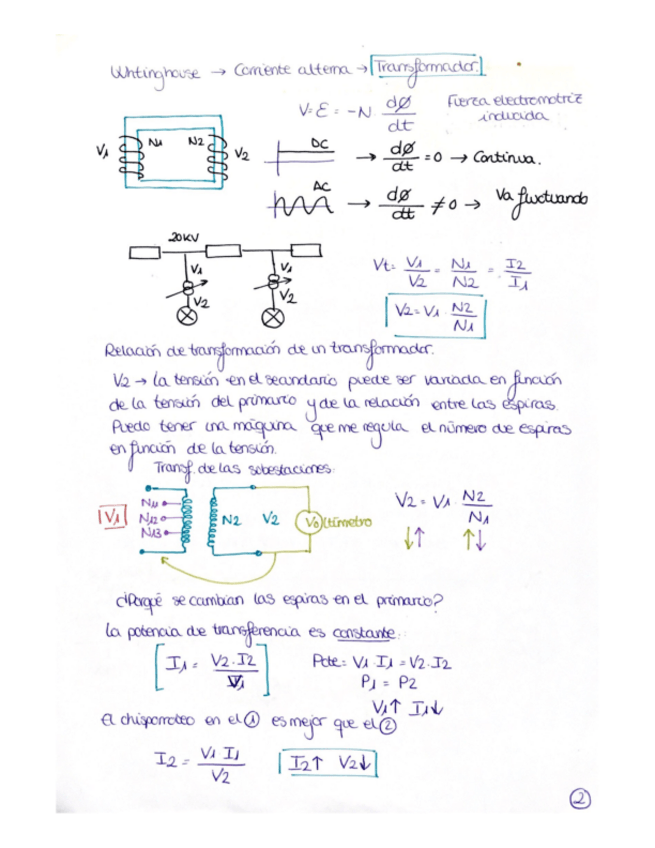 Whtinghouse → Corriente alterna → Transformador.
V = ε = -N · dø/dt Fuerza electromotriz inducida
V1 N1 N2 V2
DC → dø/dt = 0 → Continua.
AC → dø/dt ≠ 0 → Va fluctuando
20KV
V1 V1
V2 V2
Vt = V1/V2 = N1/N2 = I2/I1
V2 = V1 · N2/N1
Relación de transformación de un transformador.
V2 → La tensión en el secundario puede ser variada en función
de la tensión del primario y de la relación entre las espiras.
Puedo tener una máquina que me regula el número de espiras
en función de la tensión.
Transf. de las subestaciones.
V1 N11 N12 N13 N2 V2 Voltímetro
V2 = V1 · N2/N1
↓↑ ↑↓
¿Porqué se cambian las espiras en el primario?
La potencia de transferencia es constante.
I1 = V2·I2/V1 Pcte = V1·I1 = V2·I2
P1 = P2
V1↑ I1↓
El chisporroteo en el ① es mejor que el ②
I2 = V1 I1/V2 I2↑ V2↓
②